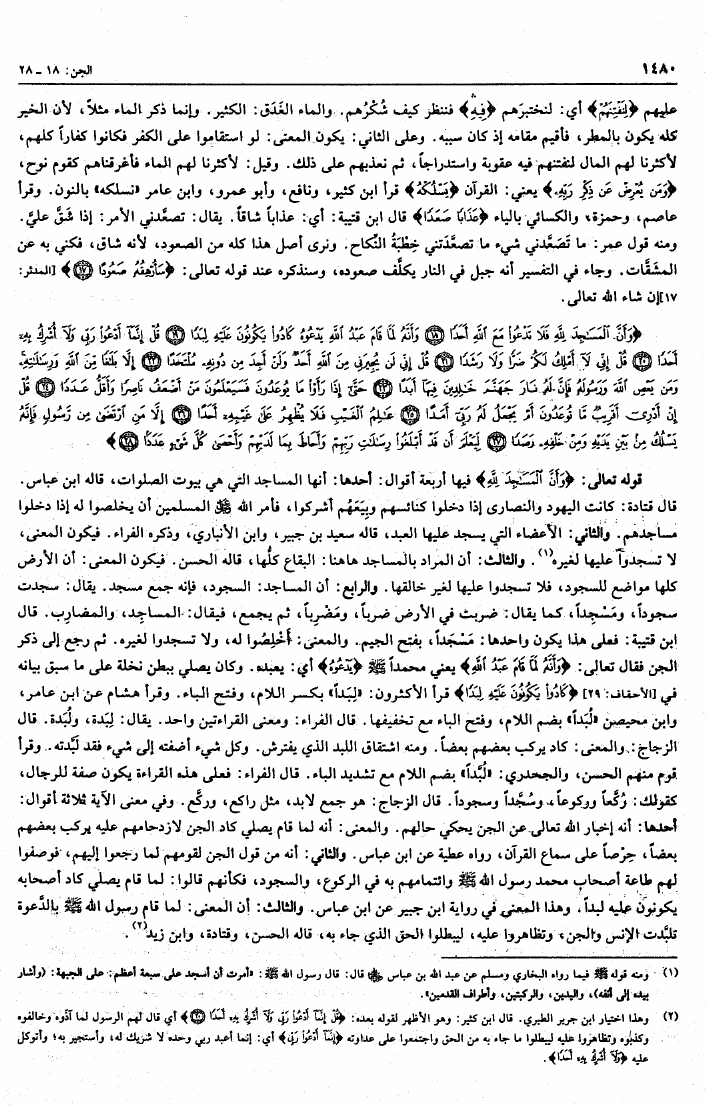 ١٤٨٠ الجن: ١٨ - ٢٨
عليهم ﴿لِنَفْتِنَهُمْ﴾ أي: لنختبرَهم ﴿فِيهِ﴾ فننظر كيف شُكْرُهم. والماء الغَدَق: الكثير. وإنما ذكر الماء مثلاً، لأن الخير
كله يكون بالمطر، فأقيم مقامه إذ كان سببه. وعلى الثاني: يكون المعنى: لو استقاموا على الكفر فكانوا كفاراً كلهم،
لأكثرنا لهم المال لنفتنهم فيه عقوبة واستدراجاً، ثم نعذبهم على ذلك. وقيل: لأكثرنا لهم الماء فأغرقناهم كقوم نوح،
﴿وَمَن يُعْرِضْ عَن ذِكْرِ رَبِّهِ﴾ يعني: القرآن ﴿يَسْلُكْهُ﴾ قرأ ابن كثير، ونافع، وأبو عمرو، وابن عامر «نسلكه» بالنون. وقرأ
عاصم، وحمزة، والكسائي بالياء ﴿عَذَابًا صَعَدًا﴾ قال ابن قتيبة: أي: عذاباً شاقاً. يقال: تصعَّدني الأمر: إذا شَقَّ عليَّ.
ومنه قول عمر: ما تَصَعَّدني شيء ما تصعَّدَتني خِطْبَةُ النِّكاح. ونرى أصل هذا كله من الصعود، لأنه شاق، فكني به عن
المشقَّات. وجاء في التفسير أنه جبل في النار يكلَّف صعوده، وسنذكره عند قوله تعالى: ﴿سَأُرْهِقُهُ صَعُودًا ۝١٧﴾ [المدثر:
١٧] إن شاء الله تعالى.
﴿وَأَنَّ الْمَسَاجِدَ لِلَّهِ فَلَا تَدْعُوا مَعَ اللَّهِ أَحَدًا ۝١٨ وَأَنَّهُ لَمَّا قَامَ عَبْدُ اللَّهِ يَدْعُوهُ كَادُوا يَكُونُونَ عَلَيْهِ لِبَدًا ۝١٩ قُلْ إِنَّمَا أَدْعُوا رَبِّي وَلَا أُشْرِكُ بِهِ
أَحَدًا ۝٢٠ قُلْ إِنِّي لَا أَمْلِكُ لَكُمْ ضَرًّا وَلَا رَشَدًا ۝٢١ قُلْ إِنِّي لَن يُجِيرَنِي مِنَ اللَّهِ أَحَدٌ وَلَنْ أَجِدَ مِن دُونِهِ مُلْتَحَدًا ۝٢٢ إِلَّا بَلَاغًا مِّنَ اللَّهِ وَرِسَالَاتِهِ
وَمَن يَعْصِ اللَّهَ وَرَسُولَهُ فَإِنَّ لَهُ نَارَ جَهَنَّمَ خَالِدِينَ فِيهَا أَبَدًا ۝٢٣ حَتَّى إِذَا رَأَوْا مَا يُوعَدُونَ فَسَيَعْلَمُونَ مَنْ أَضْعَفُ نَاصِرًا وَأَقَلُّ عَدَدًا ۝٢٤ قُلْ
إِنْ أَدْرِي أَقَرِيبٌ مَّا تُوعَدُونَ أَمْ يَجْعَلُ لَهُ رَبِّي أَمَدًا ۝٢٥ عَالِمُ الْغَيْبِ فَلَا يُظْهِرُ عَلَى غَيْبِهِ أَحَدًا ۝٢٦ إِلَّا مَنِ ارْتَضَى مِن رَّسُولٍ فَإِنَّهُ
يَسْلُكُ مِن بَيْنِ يَدَيْهِ وَمِنْ خَلْفِهِ رَصَدًا ۝٢٧ لِيَعْلَمَ أَن قَدْ أَبْلَغُوا رِسَالَاتِ رَبِّهِمْ وَأَحَاطَ بِمَا لَدَيْهِمْ وَأَحْصَى كُلَّ شَيْءٍ عَدَدًا ۝٢٨﴾.
قوله تعالى: ﴿وَأَنَّ الْمَسَاجِدَ لِلَّهِ﴾ فيها أربعة أقوال: أحدها: أنها المساجد التي هي بيوت الصلوات، قاله ابن عباس.
قال قتادة: كانت اليهود والنصارى إذا دخلوا كنائسهم وبِيَعَهُم أشركوا، فأمر الله ﷻ المسلمين أن يخلصوا له إذا دخلوا
مساجدهم. والثاني: الأعضاء التي يسجد عليها العبد، قاله سعيد بن جبير، وابن الأنباري، وذكره الفراء. فيكون المعنى،
لا تسجدوا عليها لغيره(١). والثالث: أن المراد بالمساجد هاهنا: البقاع كلُّها، قاله الحسن. فيكون المعنى: أن الأرض
كلها مواضع للسجود، فلا تسجدوا عليها لغير خالقها. والرابع: أن المساجد: السجود، فإنه جمع مسجد. يقال: سجدت
سجوداً، ومَسْجِداً، كما يقال: ضربت في الأرض ضرباً، ومَضْرِباً، ثم يجمع، فيقال: المساجد، والمضارب. قال
ابن قتيبة: فعلى هذا يكون واحدها: مَسْجَداً، بفتح الجيم. والمعنى: أَخْلِصُوا له، ولا تسجدوا لغيره. ثم رجع إلى ذكر
الجن فقال تعالى: ﴿وَأَنَّهُ لَمَّا قَامَ عَبْدُ اللَّهِ﴾ يعني محمداً ﷺ ﴿يَدْعُوهُ﴾ أي: يعبده. وكان يصلي ببطن نخلة على ما سبق بيانه
في [الأحقاف: ٢٩] ﴿كَادُوا يَكُونُونَ عَلَيْهِ لِبَدًا﴾ قرأ الأكثرون: «لِبَداً» بكسر اللام، وفتح الباء. وقرأ هشام عن ابن عامر،
وابن محيصن «لُبَداً» بضم اللام، وفتح الباء مع تخفيفها. قال الفراء: ومعنى القراءتين واحد. يقال: لِبَدة، ولُبَدة. قال
الزجاج: والمعنى: كاد يركب بعضهم بعضاً. ومنه اشتقاق اللبد الذي يفترش. وكل شيء أضفته إلى شيء فقد لَبَّدته. وقرأ
قوم منهم الحسن، والجحدري: «لُبَّداً» بضم اللام مع تشديد الباء. قال الفراء: فعلى هذه القراءة يكون صفة للرجال،
كقولك: رُكَّعاً وركوعاً، وسُجَّداً وسجوداً. قال الزجاج: هو جمع لابد، مثل راكع، وركَّع. وفي معنى الآية ثلاثة أقوال:
أحدها: أنه إخبار الله تعالى عن الجن يحكي حالهم. والمعنى: أنه لما قام يصلي كاد الجن لازدحامهم عليه يركب بعضهم
بعضاً، حِرْصاً على سماع القرآن، رواه عطية عن ابن عباس. والثاني: أنه من قول الجن لقومهم لما رجعوا إليهم، فوصفوا
لهم طاعة أصحاب محمد رسول الله ﷺ وائتمامهم به في الركوع، والسجود، فكأنهم قالوا: لما قام يصلي كاد أصحابه
يكونون عليه لبداً. وهذا المعنى في رواية ابن جبير عن ابن عباس. والثالث: أن المعنى: لما قام رسول الله ﷺ بالدَّعوة
تلبَّدت الإنس والجن، وتظاهروا عليه، ليبطلوا الحق الذي جاء به، قاله الحسن، وقتادة، وابن زيد(٢).
(١) ومنه قوله ﷺ فيما رواه البخاري ومسلم عن عبد الله بن عباس ﷺ قال: قال رسول الله ﷺ: «أمرت أن أسجد على سبعة أعظم: على الجبهة: (وأشار
بيده إلى أنفه)، واليدين، والركبتين، وأطراف القدمين».
(٢) وهذا اختيار ابن جرير الطبري. قال ابن كثير: وهو الأظهر لقوله بعده: ﴿قُلْ إِنَّمَا أَدْعُوا رَبِّي وَلَا أُشْرِكُ بِهِ أَحَدًا ۝٢٠﴾ أي قال لهم الرسول لما آذوه وخالفوه
وكذبوه وتظاهروا عليه ليبطلوا ما جاء به من الحق واجتمعوا على عداوته ﴿إِنَّمَا أَدْعُوا رَبِّي﴾ أي: إنما أعبد ربي وحده لا شريك له، وأستجير به، وأتوكل
عليه ﴿وَلَا أُشْرِكُ بِهِ أَحَدًا﴾.